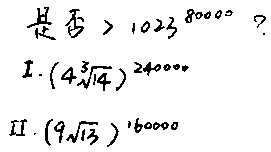 是否 > 1023^80000 ?
I. (4∛14)^240000
II. (9√13)^160000